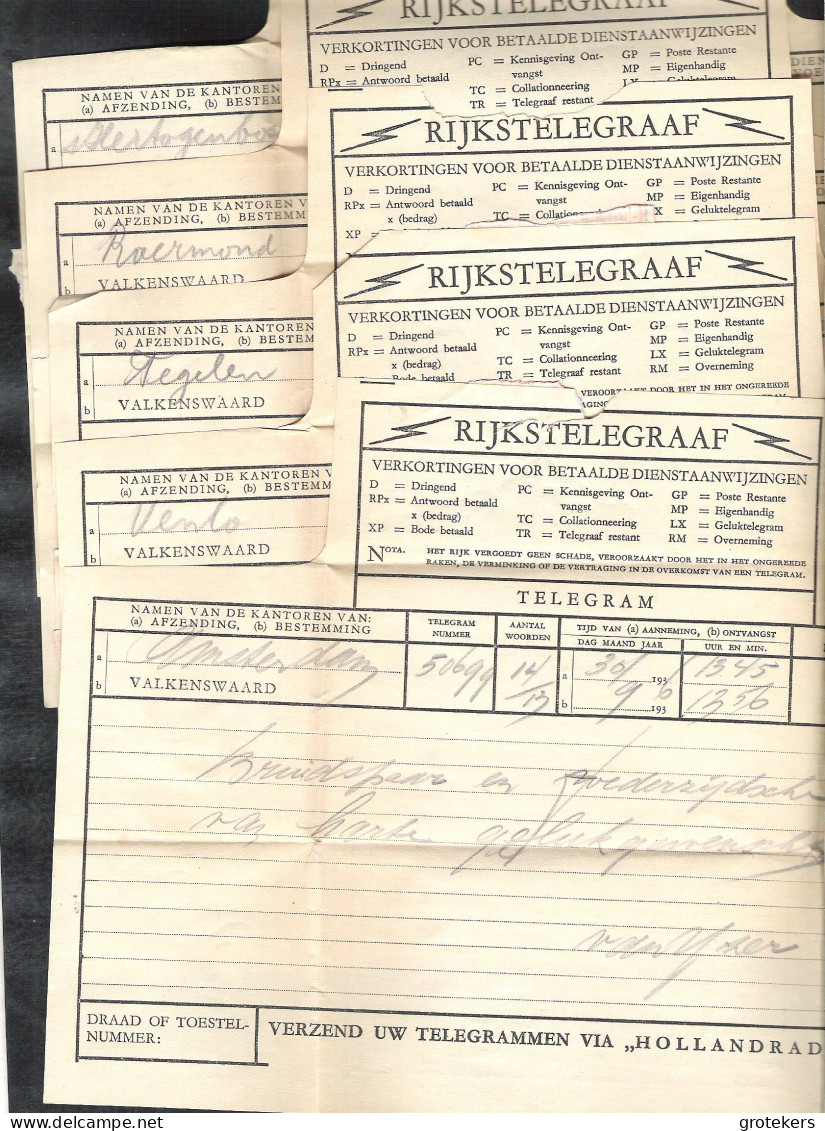 RIJKSTELEGRAAF
VERKORTINGEN VOOR BETAALDE DIENSTAANWIJZINGEN
D = Dringend PC = Kennisgeving Ont- GP = Poste Restante
RPx = Antwoord betaald vangst MP = Eigenhandig
TC = Collationneering LX = Geluktelegram
TR = Telegraaf restant
NAMEN VAN DE KANTOREN
(a) AFZENDING, (b) BESTEM
a
RIJKSTELEGRAAF
VERKORTINGEN VOOR BETAALDE DIENSTAANWIJZINGEN
D = Dringend PC = Kennisgeving Ont- GP = Poste Restante
RPx = Antwoord betaald vangst MP = Eigenhandig
x (bedrag) TC = Collationneering X = Geluktelegram
XP =
NAMEN VAN DE KANTOREN V
(a) AFZENDING, (b) BESTEMM
a Roermond
b VALKENSWAARD
RIJKSTELEGRAAF
VERKORTINGEN VOOR BETAALDE DIENSTAANWIJZINGEN
D = Dringend PC = Kennisgeving Ont- GP = Poste Restante
RPx = Antwoord betaald vangst MP = Eigenhandig
x (bedrag) TC = Collationneering LX = Geluktelegram
Bode betaald TR = Telegraaf restant RM = Overneming
VEROORZAAKT DOOR HET IN HET ONGEREEDE
NAMEN VAN DE KANTOREN
(a) AFZENDING, (b) BESTEMM
a Tegelen
b VALKENSWAARD
RIJKSTELEGRAAF
VERKORTINGEN VOOR BETAALDE DIENSTAANWIJZINGEN
D = Dringend PC = Kennisgeving Ont- GP = Poste Restante
RPx = Antwoord betaald vangst MP = Eigenhandig
x (bedrag) TC = Collationneering LX = Geluktelegram
XP = Bode betaald TR = Telegraaf restant RM = Overneming
NOTA. HET RIJK VERGOEDT GEEN SCHADE, VEROORZAAKT DOOR HET IN HET ONGEREEDE
RAKEN, DE VERMINKING OF DE VERTRAGING IN DE OVERKOMST VAN EEN TELEGRAM.
NAMEN VAN DE KANTOREN V
(a) AFZENDING, (b) BESTEM
a Venlo
b VALKENSWAARD
TELEGRAM
NAMEN VAN DE KANTOREN VAN: TELEGRAM AANTAL TIJD VAN (a) AANNEMING, (b) ONTVANGST
(a) AFZENDING, (b) BESTEMMING NUMMER WOORDEN DAG MAAND JAAR UUR EN MIN.
a Amsterdam 50699 14/13 a 30/9 193 6 13.45
b VALKENSWAARD b 193 1356
Bruidspaar en wederzijdsche
van harte gelukgewenscht
DRAAD OF TOESTEL-
NUMMER:
VERZEND UW TELEGRAMMEN VIA „HOLLANDRAD
grotekers
© delcampe.net